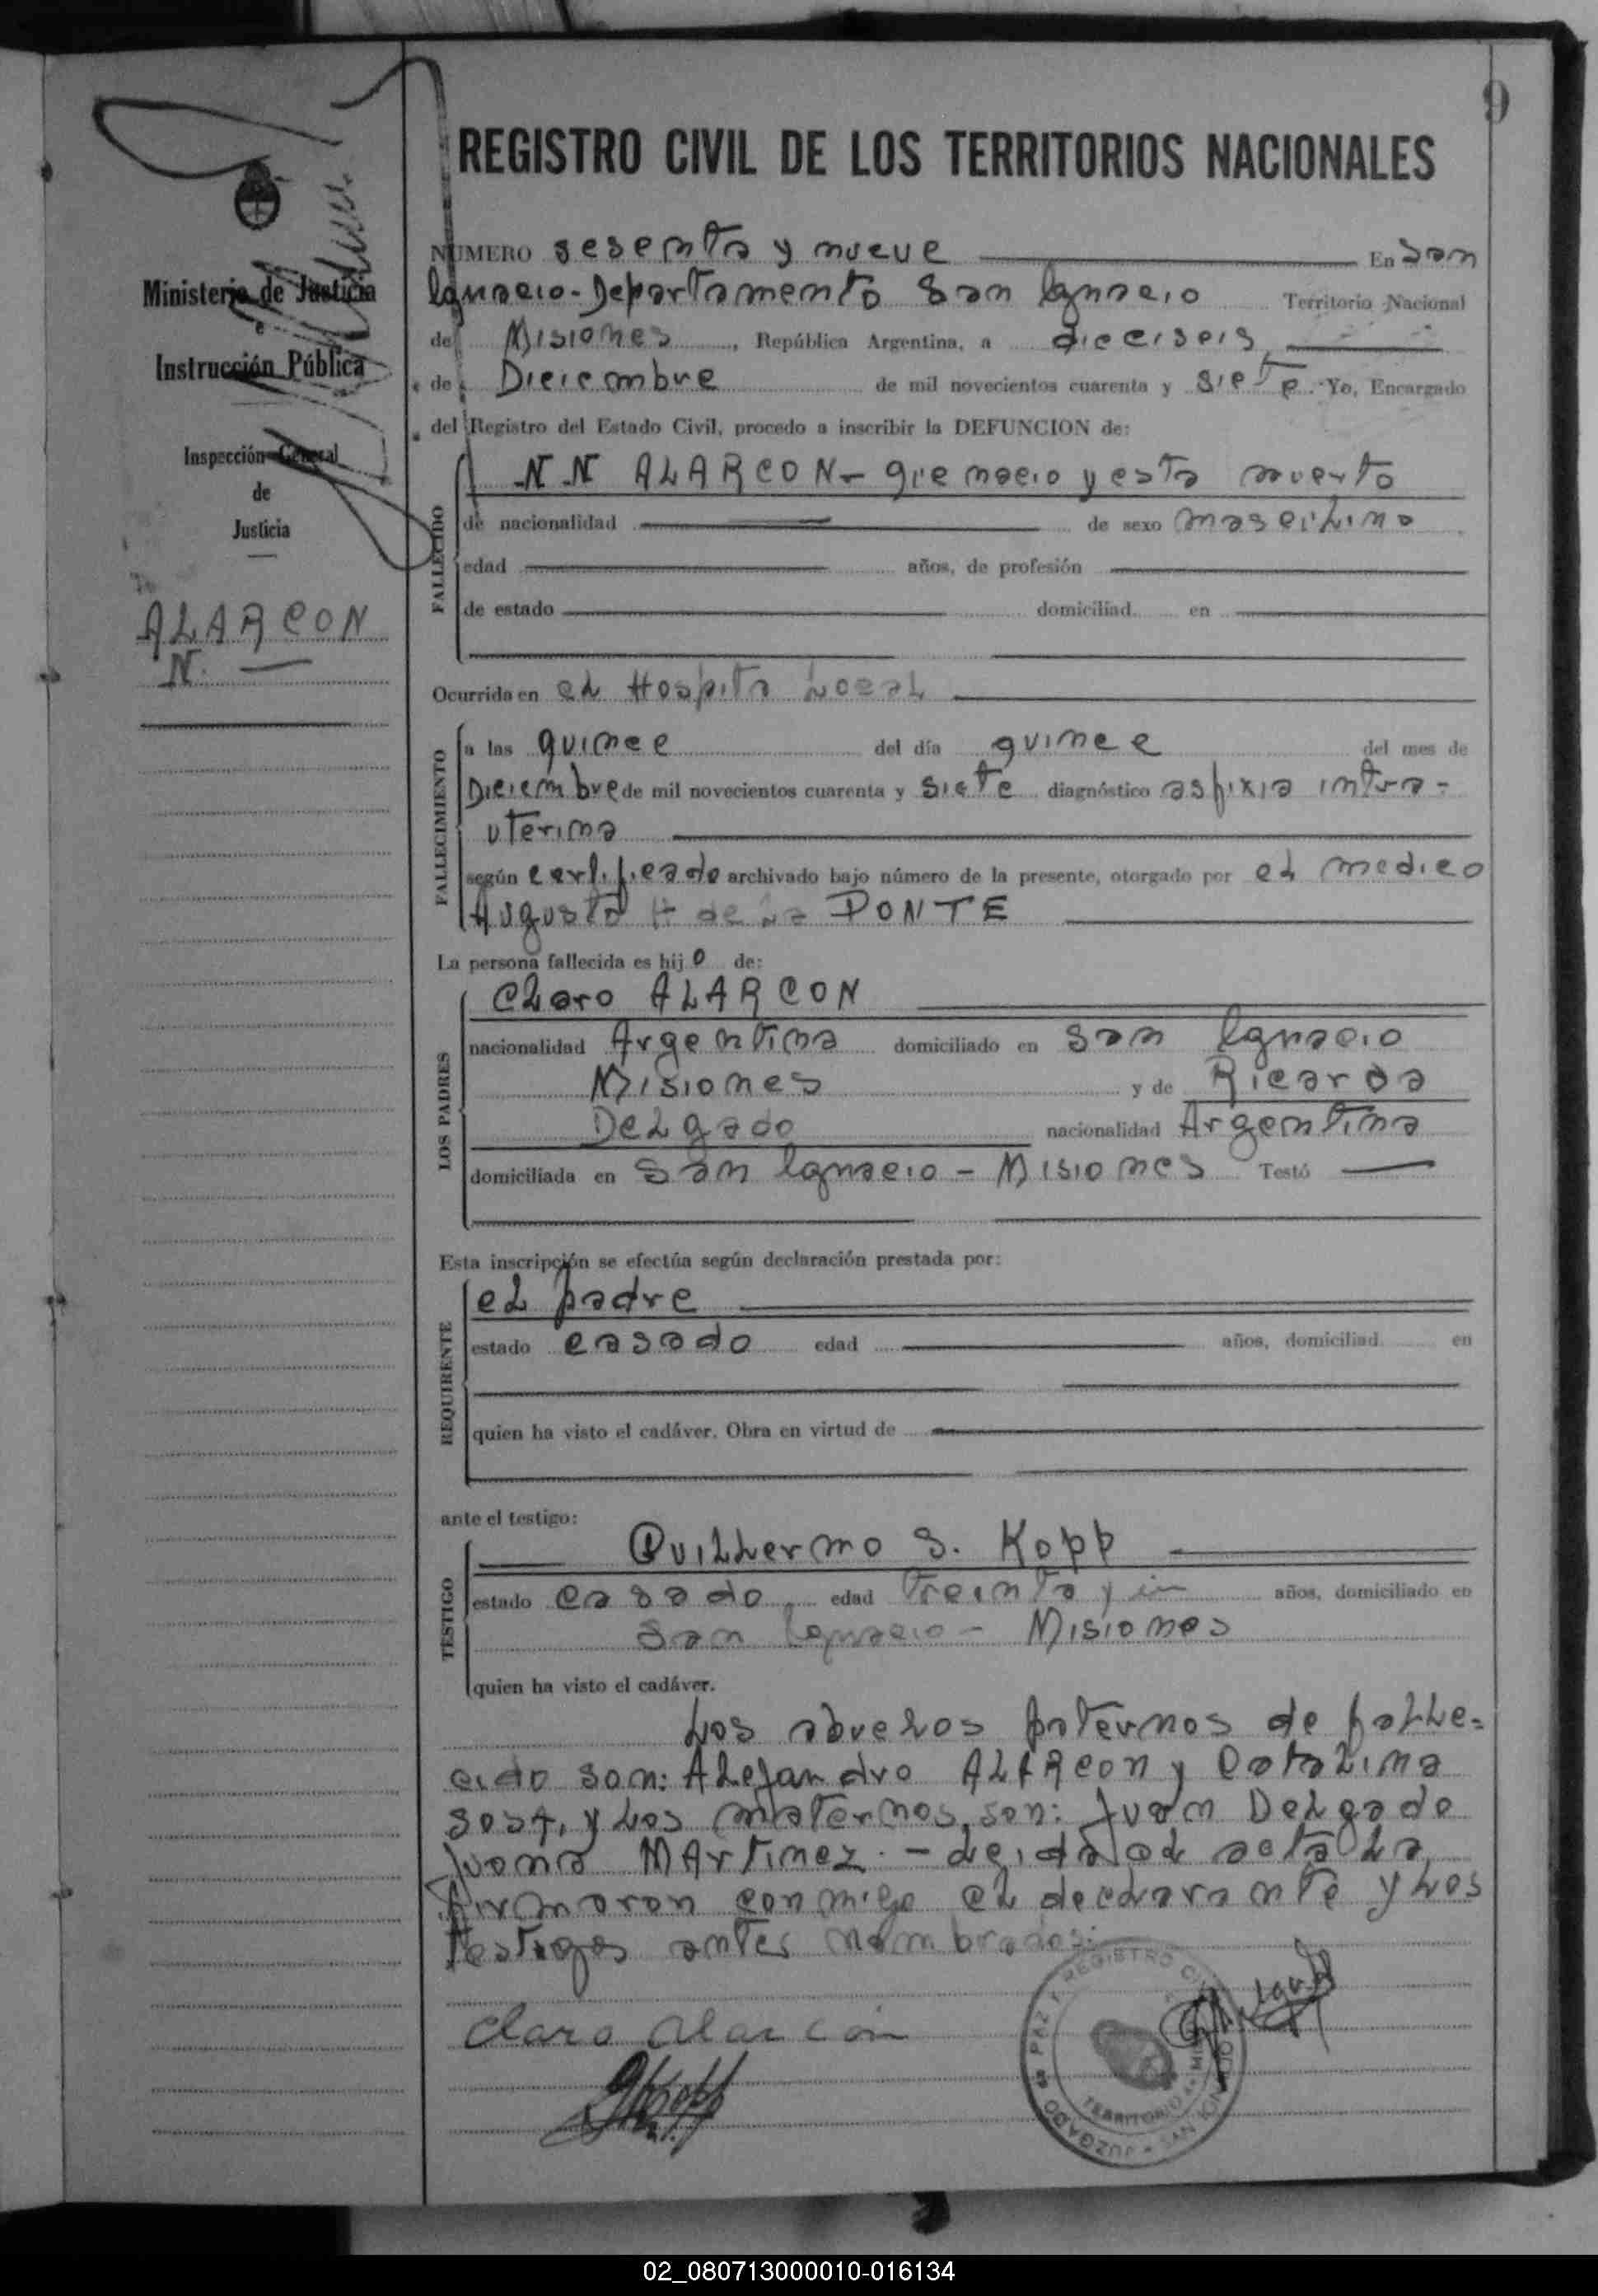 9
REGISTRO CIVIL DE LOS TERRITORIOS NACIONALES
Ministerio de Justicia
e
Instrucción Pública
Inspección General
de
Justicia
ALARCON
N.
NUMERO sesenta y nueve En San
Ignacio-Departamento San Ignacio Territorio Nacional
de Misiones, República Argentina, a dieciseis
de Diciembre de mil novecientos cuarenta y siete Yo, Encargado
del Registro del Estado Civil, procedo a inscribir la DEFUNCION de:
FALLECIDO
N N ALARCON- que nacio y esta muerto
de nacionalidad de sexo masculino
edad años, de profesión
de estado domiciliad en
Ocurrida en el Hospita Local
FALLECIMIENTO
a las quince del día quince del mes de
Diciembre de mil novecientos cuarenta y siete diagnóstico asfixia intra-
uterina
según certificado archivado bajo número de la presente, otorgado por el medico
Augusto H de La PONTE
La persona fallecida es hijo de:
LOS PADRES
Claro ALARCON
nacionalidad Argentina domiciliado en San Ignacio
Misiones y de Ricarda
Delgado nacionalidad Argentina
domiciliada en San Ignacio - Misiones Testó
Esta inscripción se efectúa según declaración prestada por:
REQUIRENTE
el padre
estado casado edad años, domiciliad en
quien ha visto el cadáver. Obra en virtud de
ante el testigo:
TESTIGO
Guillermo S. Kopp
estado casado, edad treinta y un años, domiciliado en
San Ignacio - Misiones
quien ha visto el cadáver.
Los abuelos paternos de falle=
cido son: Alejandro ALARCON y Catalina
Sosa, y Los maternos son: Juan Delgado
Juana MArtinez. - Leida el acta La
firmaron conmigo el declarante y Los
testigos antes nombrados:
Claro Alarcón
GKopp
JUZGADO DE PAZ Y REGISTRO CIVIL
SAN IGNACIO
TERRITORIO MISIONES
02_080713000010-016134